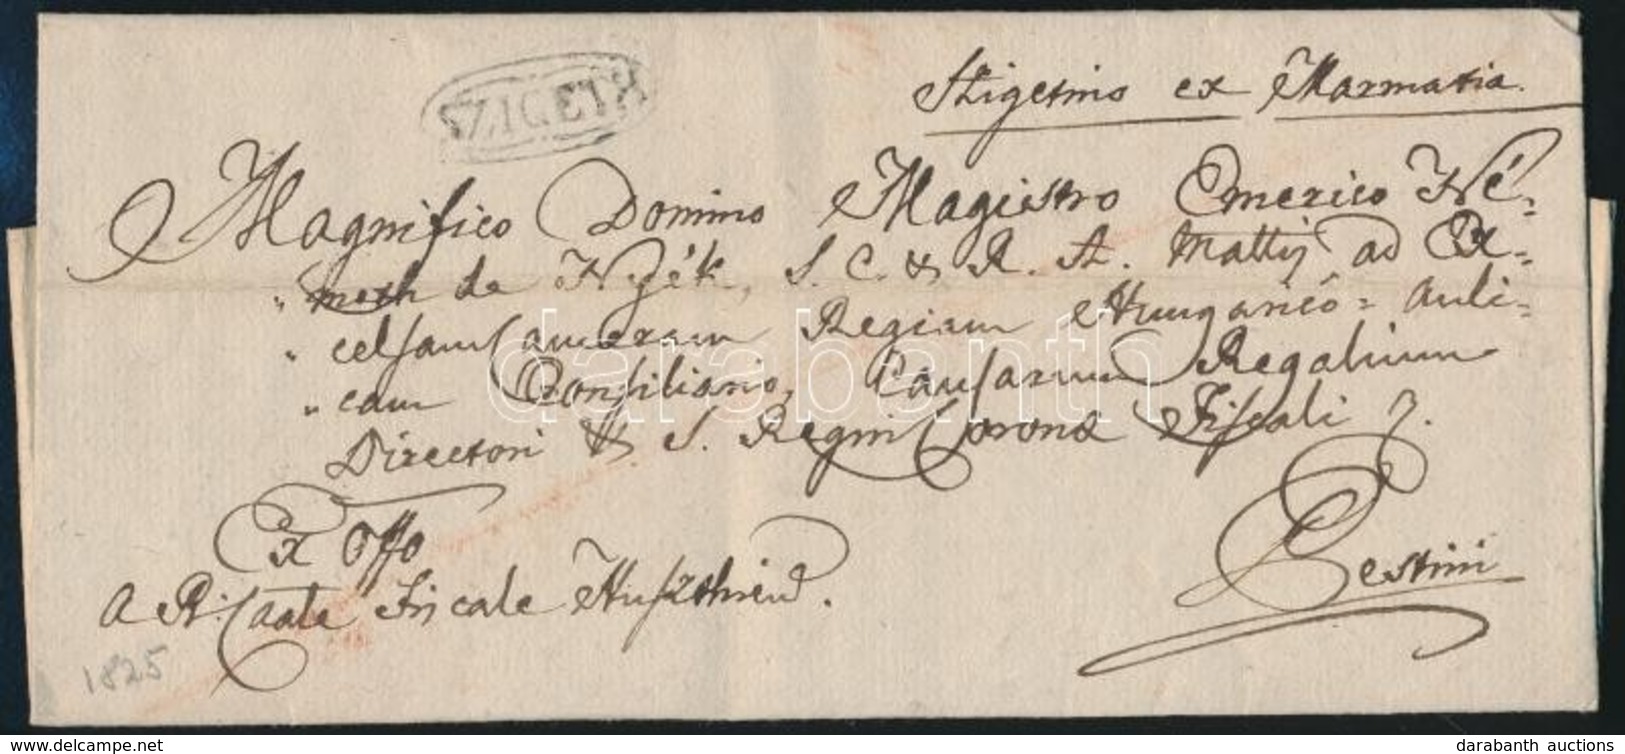 SZIGETH
Szigetino ex Marmatia.
Magnifico Domino Magistro Emerico Né-
"meth de Nyék, S. C. & R. A. Mattis ad Ex-
"celsam Cameram Regiam Hungarico = Auli-
"cam Consiliario, Causarum Regalium
Directori & S. Regni Coronæ Fiscali
Ex Offo
Pestini
A R: Caale Fiscale
1825
darabanth
darabanth auctions
www.delcampe.net